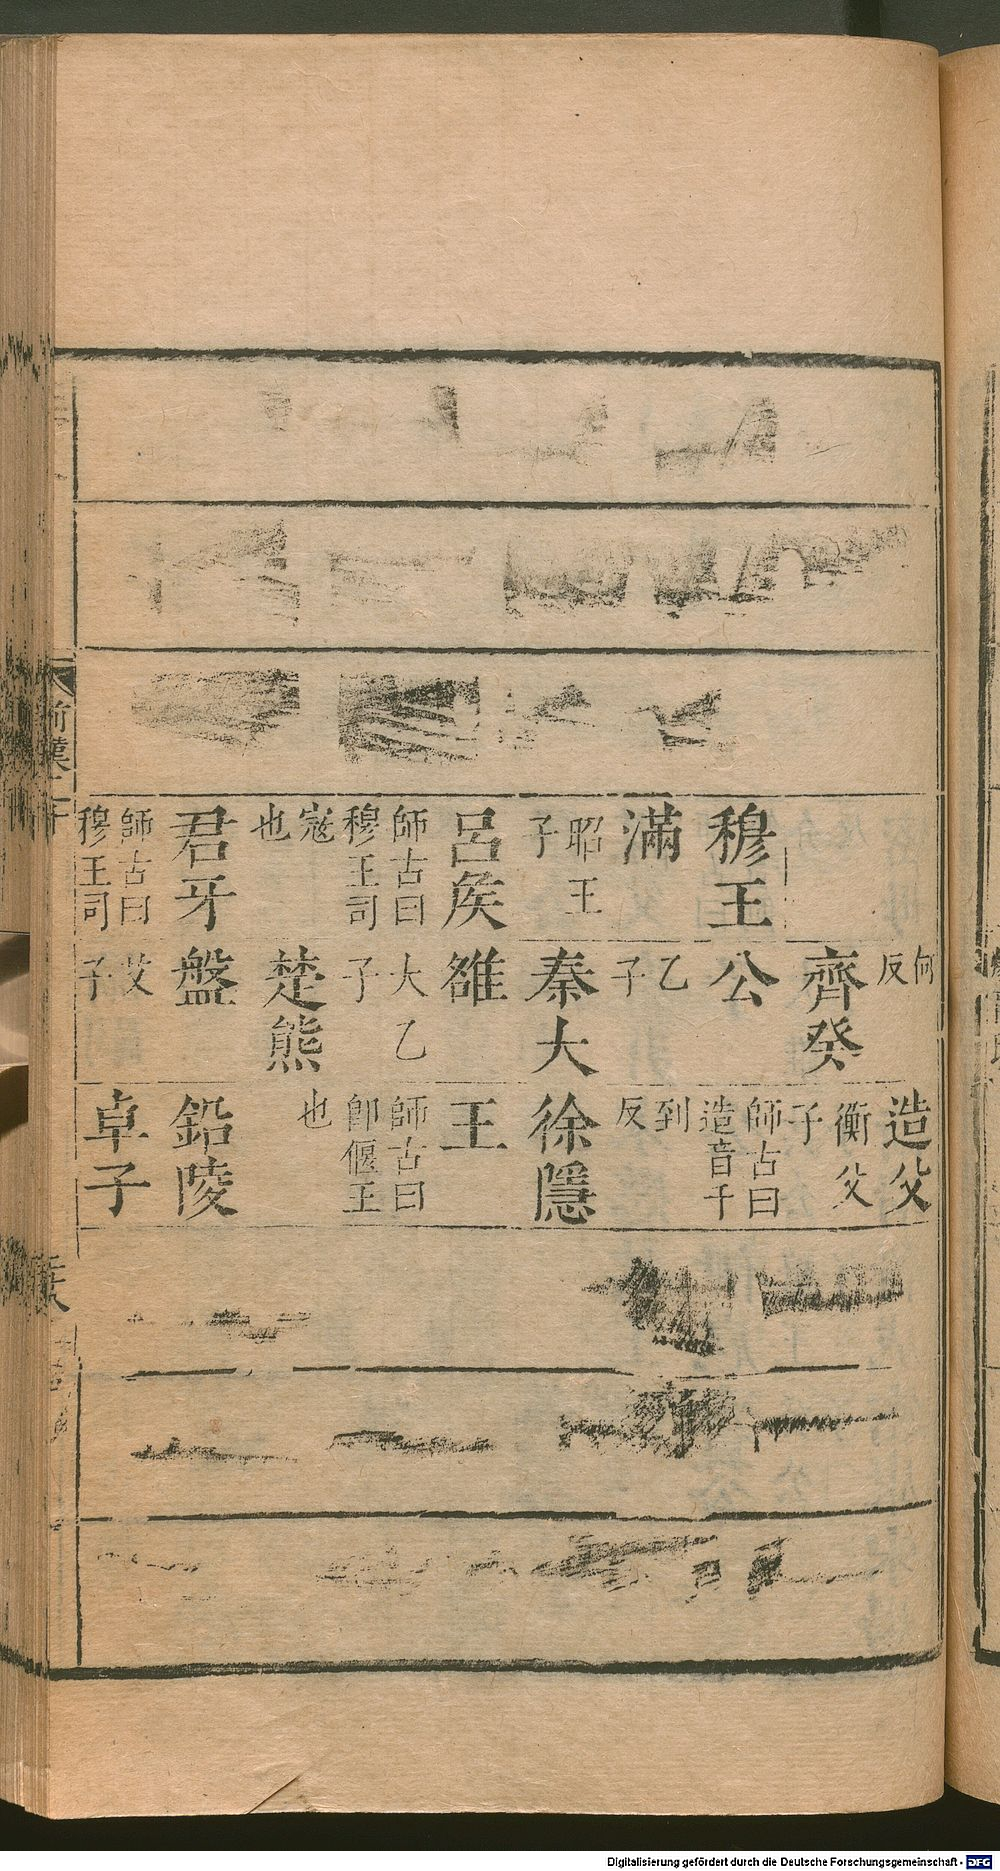 穆王
滿
昭王
子
呂矦
師古曰
穆王司
寇
也
君牙
師古曰
穆王司
何
反
齊癸
公
乙
子
秦大
雒
大乙
子
楚熊
盤
艾
子
造父
衡父
子
師古曰
造音千
到
反
徐隱
王
師古曰
卽偃王
也
鉛陵
卓子
前漢二十
Digitalisierung gefördert durch die Deutsche Forschungsgemeinschaft - DFG